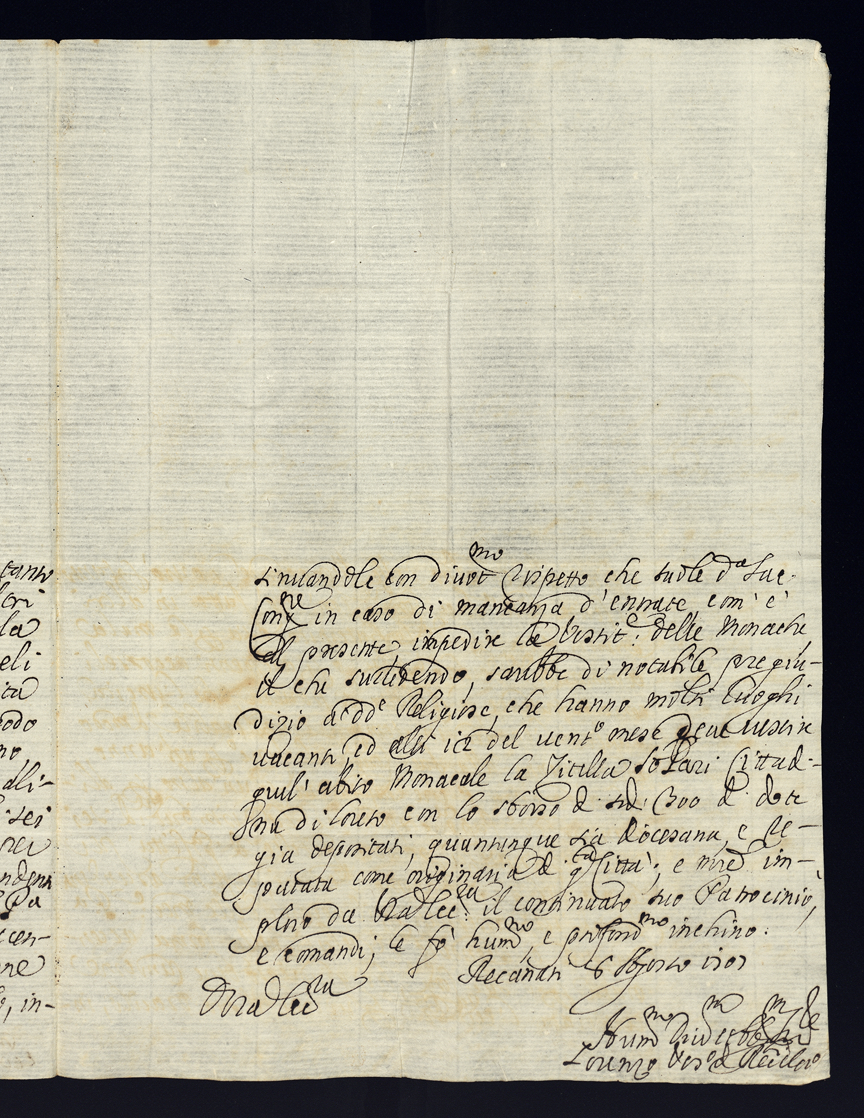 canto
cri
la
eli
ità
odo
no,
ali-
sei
cen-
ne
o, in-
sinuandole con divot.mo rispetto che suole d.a Sac.
Cong.ne in caso di mancanza d'entrate, com'è
al presente, impedire le Vestit.e delle Monache
il che succedendo, sarebbe di notabile pregiu-
dizio a d.e Religiose, che hanno molti luoghi
vacanti, ed alli 12 del vent.o mese deve vestire
quel' abito Monacale la Zitella Solari Cittad-
ina di Loreto con lo sborso di sc.di 300 di dote
gia depositati, quantunque sia diocesana, e re-
putata come originaria di q.ta Città; e m're im-
ploro da V'ra Ecc.za il continuato suo Patrocinio,
e comandi; le fò hum.mo, e profond.mo inchino.
Recanati 6 Agosto 1707
D V'ra Ecc.za
Hum.mo Div.mo
Lorenzo Vesc.o di